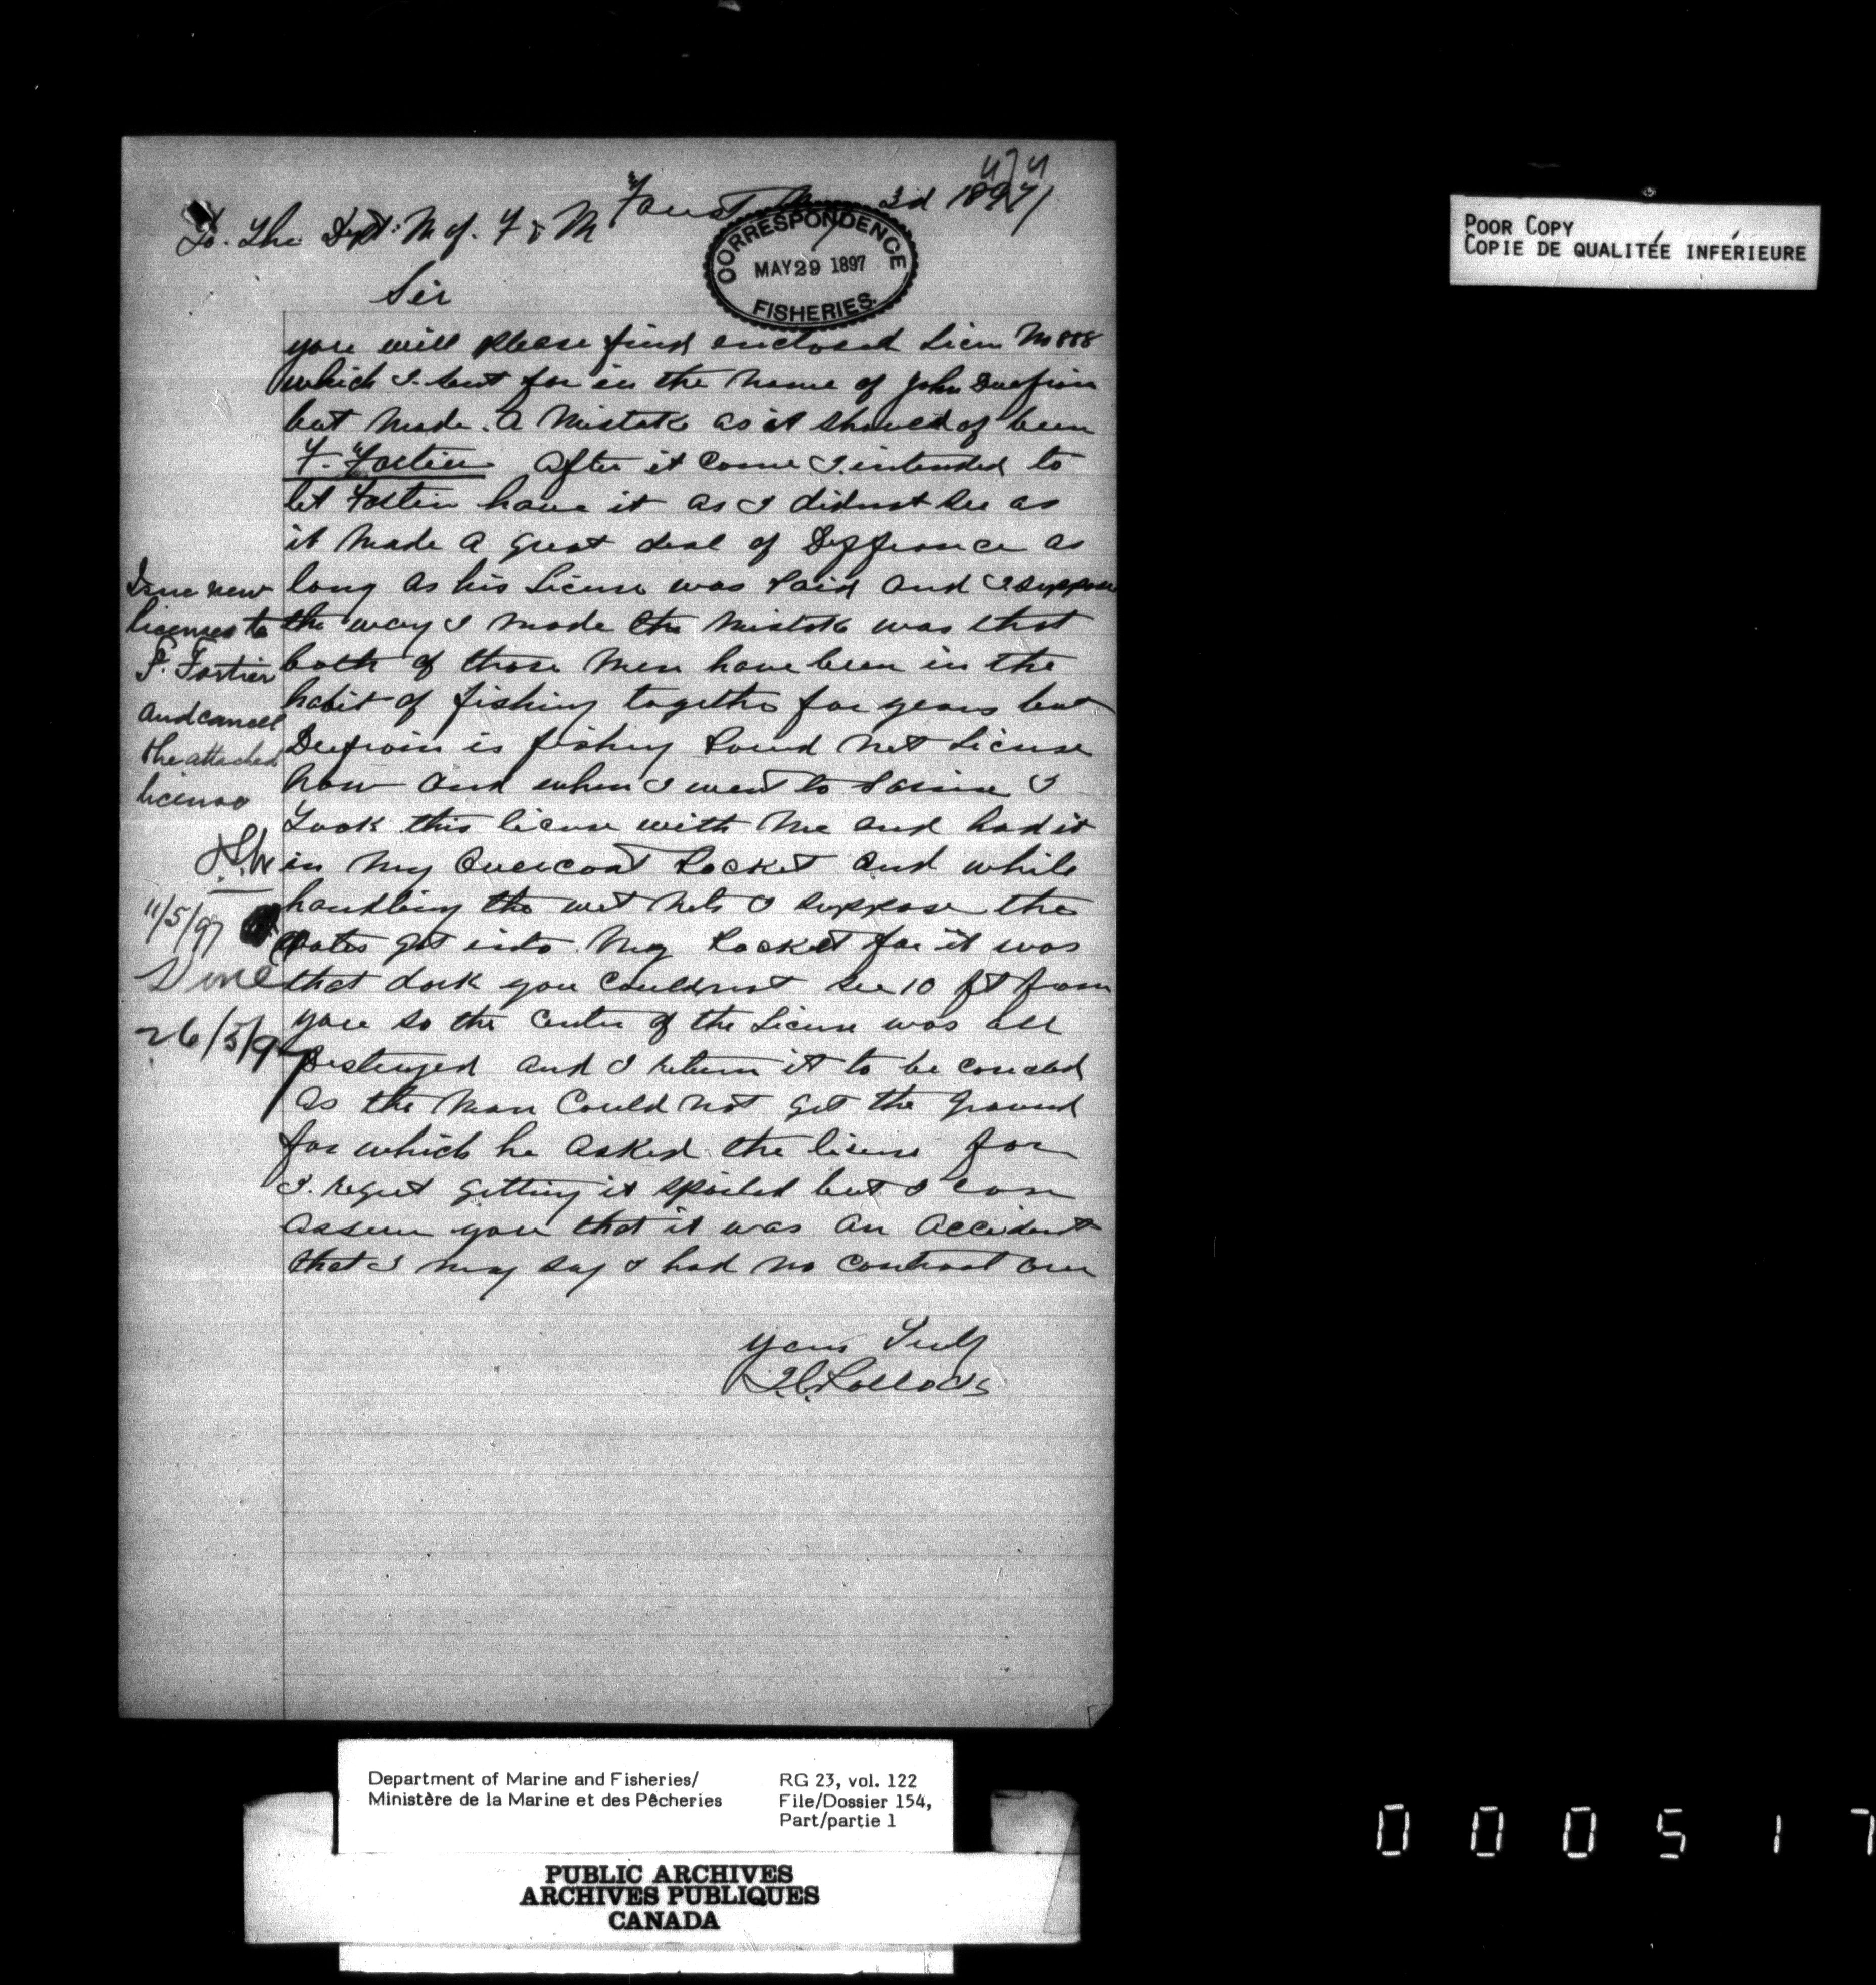 474
3d 1897
To. The Dept: M of. F & M
CORRESPONDENCE
MAY 29 1897
FISHERIES.
Sir
you will please find enclosed Licen No 888
which I. sent for in the name of John
but made. a Mistake as it should of been
F. Fortier after it come I. intended to
let Fortier have it as I didnot see as
it made a great deal of Deffrance as
long as his License was Paid and I suppose
the way I made the Mistake was that
both of those Men have been in the
habit of fishing together for years but
is fishing Pound Net License
now and when I went to I
Took this license with me and had it
in my overcoat Pocket and while
handling the wet Nets I suppose the
water got into. My Pocket for it was
that dark you couldnot see 10 ft from
you so the center of the License was all
Destroyed and I return it to be canceled
as the man Could not get the ground
for which he asked the licens for
I. regret getting it spoiled but I can
assure you that it was an accident
that I may say I had no controol over
yours Truly
Pollock
Issue new
licenses to
F. Fortier
and cancell
the attached
license
11/5/97
Done
26/5/97
POOR COPY
COPIE DE QUALITÉE INFÉRIEURE
Department of Marine and Fisheries/
Ministère de la Marine et des Pêcheries
RG 23, vol. 122
File/Dossier 154,
Part/partie 1
PUBLIC ARCHIVES
ARCHIVES PUBLIQUES
CANADA
000517